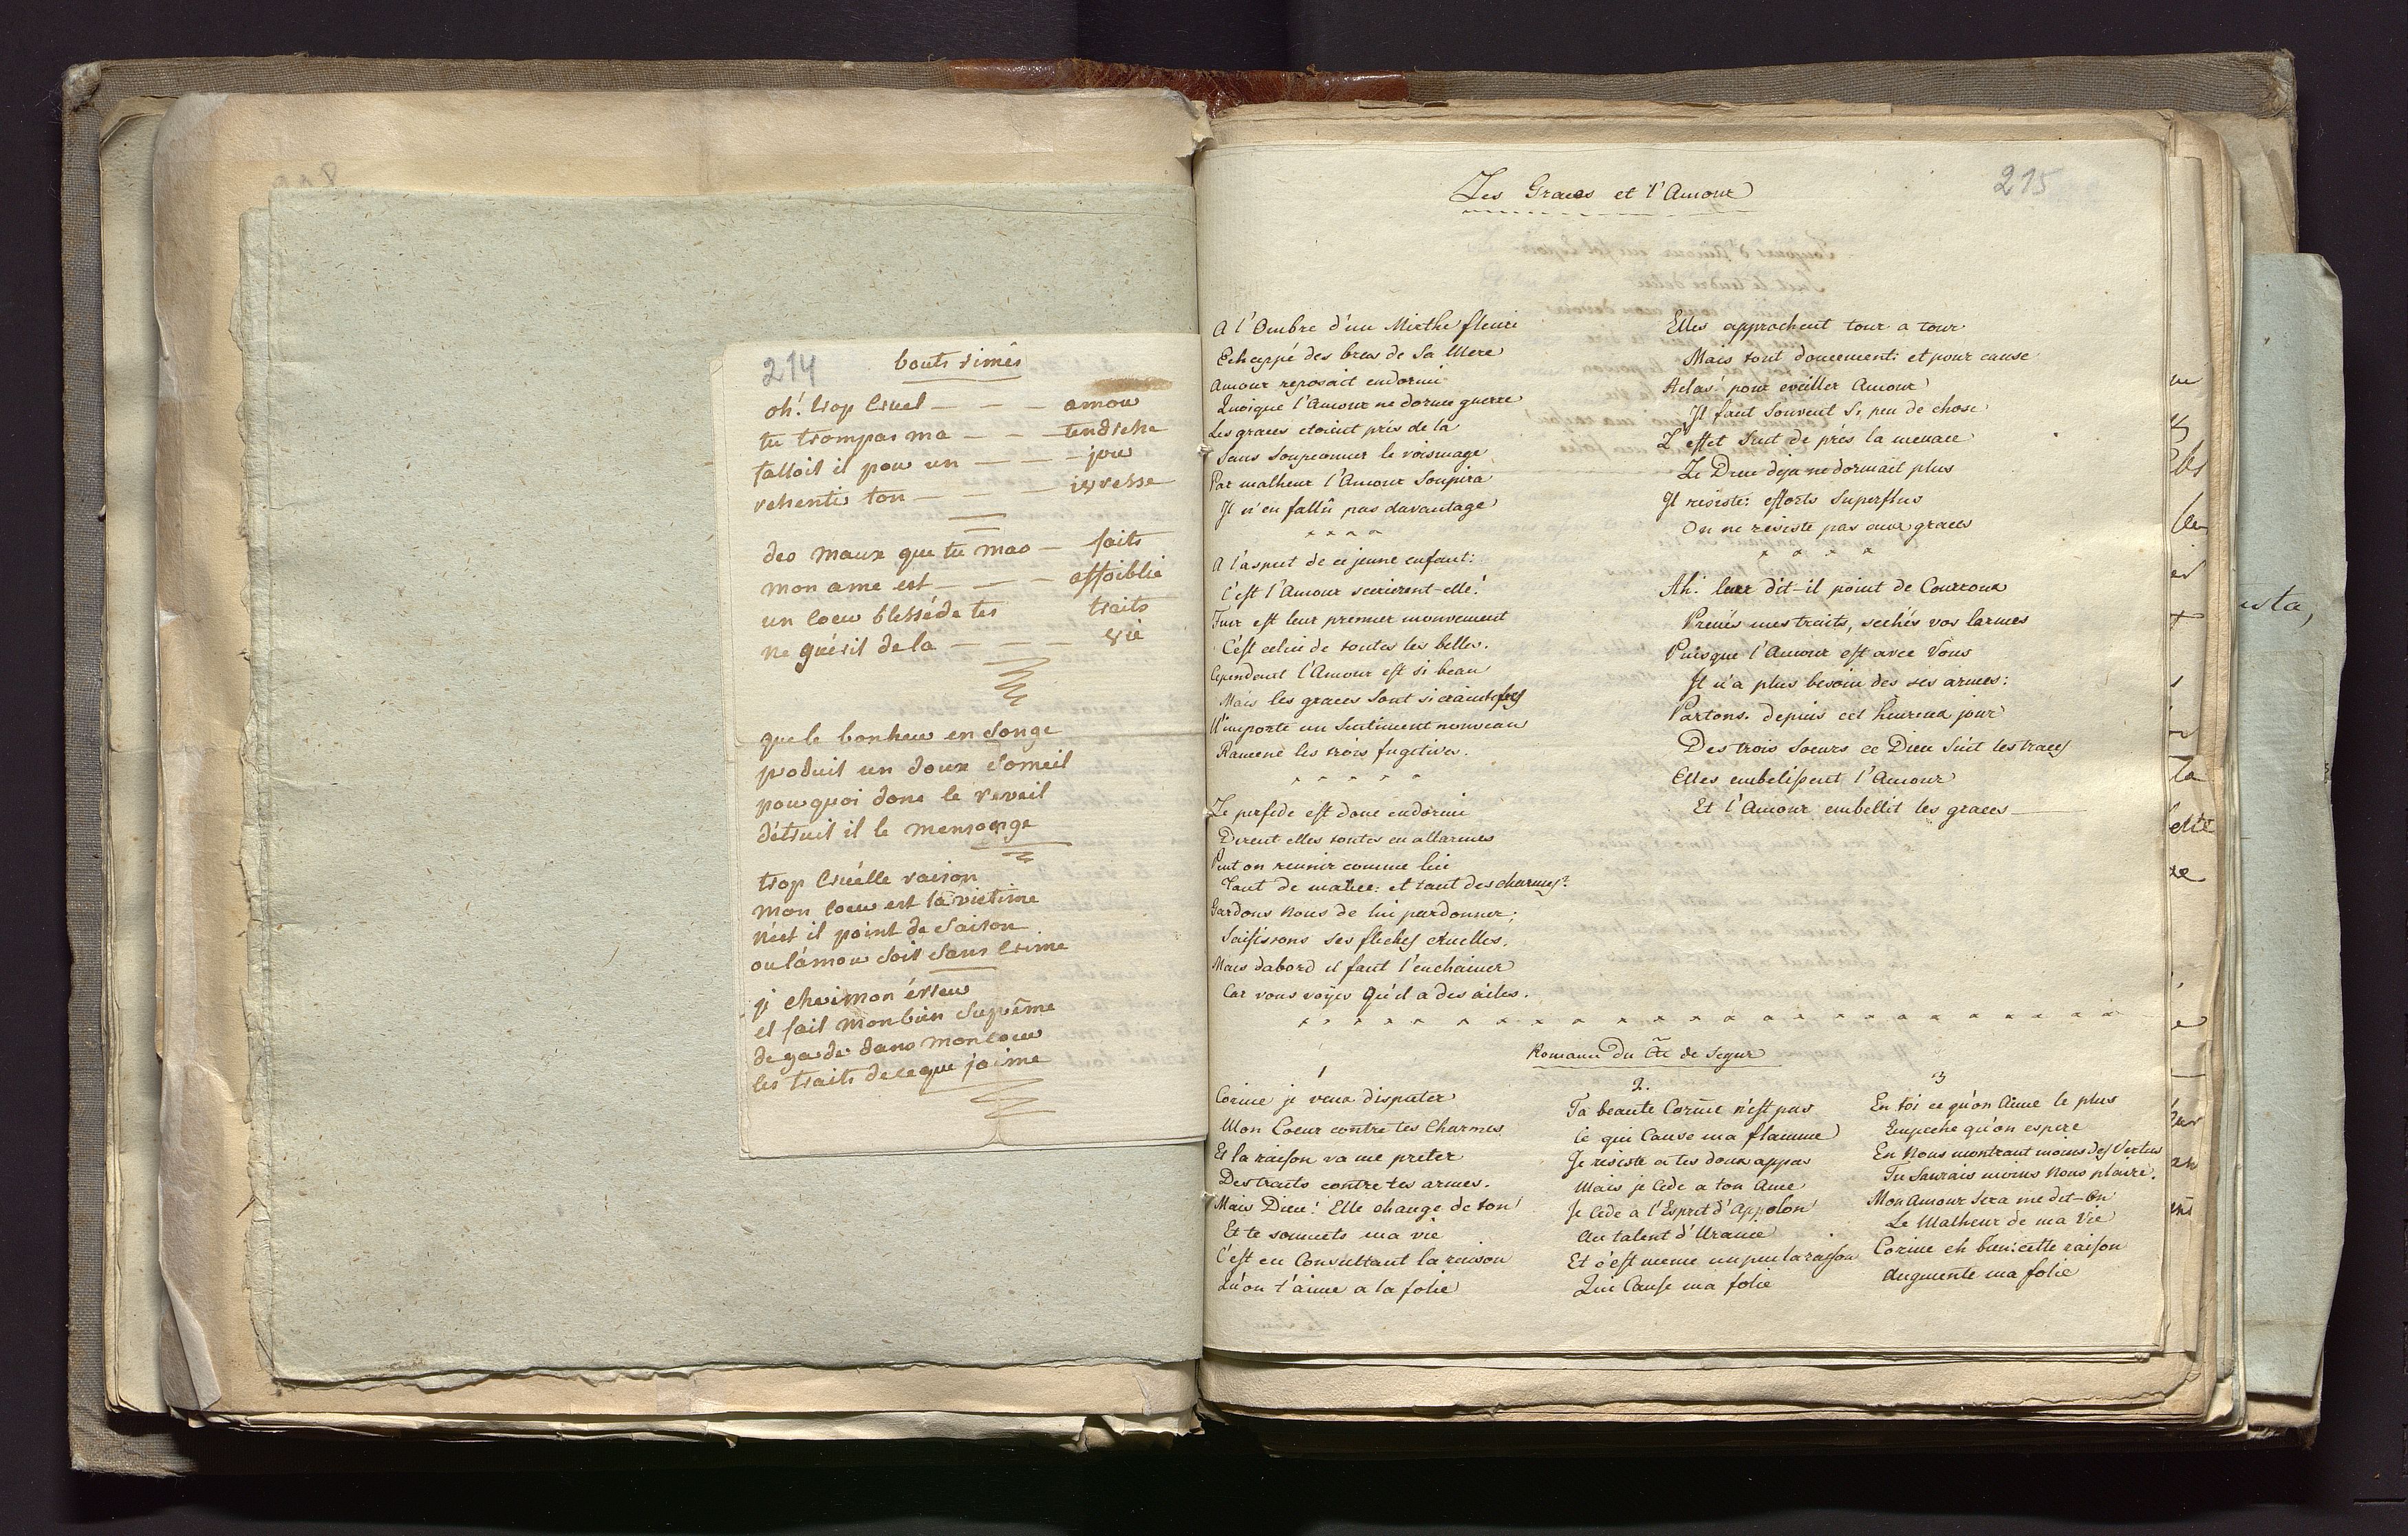 214
bouts rimés
oh! trop Cruel — — — amour
tu trompas ma — — tendresse
falloit il pour un — — — jour
ressentir ton — — — ivresse
des maux que tu mas — faits
mon ame est — — — affoiblie
un coeur blessé de tes traits
ne guérit de la — — — vie
que le bonheur en songe
produit un doux someil
pourquoi donc le reveil
détruit il le mensonge
trop Cruélle raison
mon coeur est la victime
n'est il point de saison
ou lámour soit sans Crime
je cheri mon érreur
el fait mon bien suprême
je garde dans mon coeur
les traits de ce que j'aime
215
Les Graces et l'Amour
A l'Ombre d'un Mirthe fleuri
Echappé des bras de Sa Mere
Amour reposait endormi
Quoique l'Amour ne dorme guerre
Les graces etoient près de la
Sans Soupconner le voisinage
Par malheur l'Amour Soupira
Il n'en fallû pas davantage
A l'aspect de ce jeune enfant:
C'est l'Amour secrierent-elle!
Fuir est leur premier mouvement
C'est celui de toutes les belles.
Cependent l'Amour est si beau
Mais les graces Sont si craintives
N'importe un Sentiment nouveau
Ramene les trois fugitives.
Le perfide est donc endormi
Dirent elles toutes en allarmes
Peut on reunir comme lui
Tant de malice: et tant des charmes?
Gardons nous de lui pardonner;
Saisissons ses fleches cruelles.
Mais dabord il faut l'enchainer
Car vous voyes Qu'il a des ailes.
Elles approchent tour a tour
Mais tout doucement: et pour cause
Helas! pour eveiller Amour
Il faut Souvent Si peu de chose
L'effet Suit de près la menace
Le Dieu deja ne dormait plus
Il resiste: efforts Superflus
On ne resiste pas aux graces
Ah! leur dit-il point de Courroux
Prenés mes traits, sechés vos larmes
Puisque l'Amour est avec Vous
Il n'a plus besoin des ses armes:
Partons. depuis cet heureux jour
Des trois Soeurs ce Dieu Suit les traces
Elles embelissent l'Amour
Et l'Amour embellit les graces
Romance du Cte de Segur
1
Corine je veux disputer
Mon Coeur contre tes Charmes
Et la raison va me preter
Des traits contre tes armes.
Mais Dieu! Elle change de ton
Et te soumets ma vie
C'est en Consultant la raison
Qu'on t'aime a la folie
2.
Ta beaute Corine n'est pas
Ce qui Cause ma flamme
Je resiste a tes doux appas
Mais je Cede a ton Ame
Je Cede a l'Esprit d'Appolon
Au talent d'Uranie
Et c'est meme un peu la raison
Qui Cause ma folie
3
En toi ce qu'on Aime le plus
Empeche qu'on espere
En Nous montrant moins des Vertus
Tu Saurais moins Nous plaire.
Mon Amour Sera me dit-On
Le Malheur de ma Vie
Corine eh bien: cette raison
Augmente ma folie